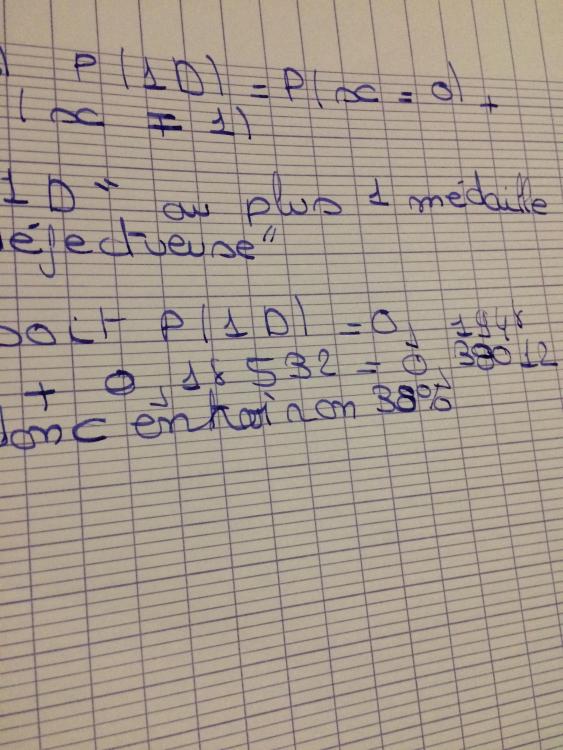 ) P(1D) = P(x = 0) +
(x = 1)
1D" au plus 1 médaille
éfectueuse"
soit P(1D) = 0, 1948
+ 0,18532 = 0,38012
donc environ 38%